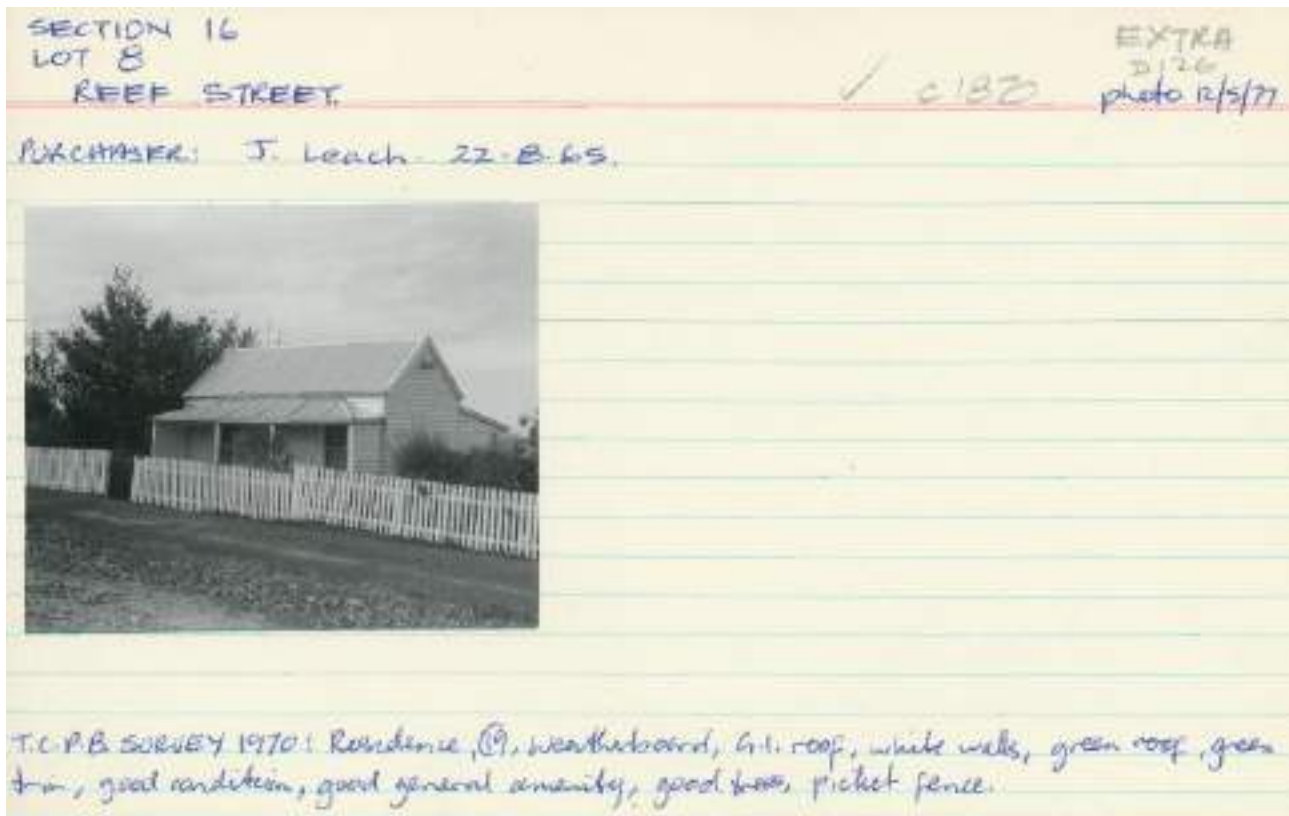 SECTION 16
LOT 8
REEF STREET.
EXTRA
D126
✓ c1870
photo 12/5/77
PURCHASER: J. Leach. 22-8-65.
T.C.P.B. SURVEY 1970: Residence, C19, weatherboard, G.I. roof, white walls, green roof, green
trim, good condition, good general amenity, good trees, picket fence.